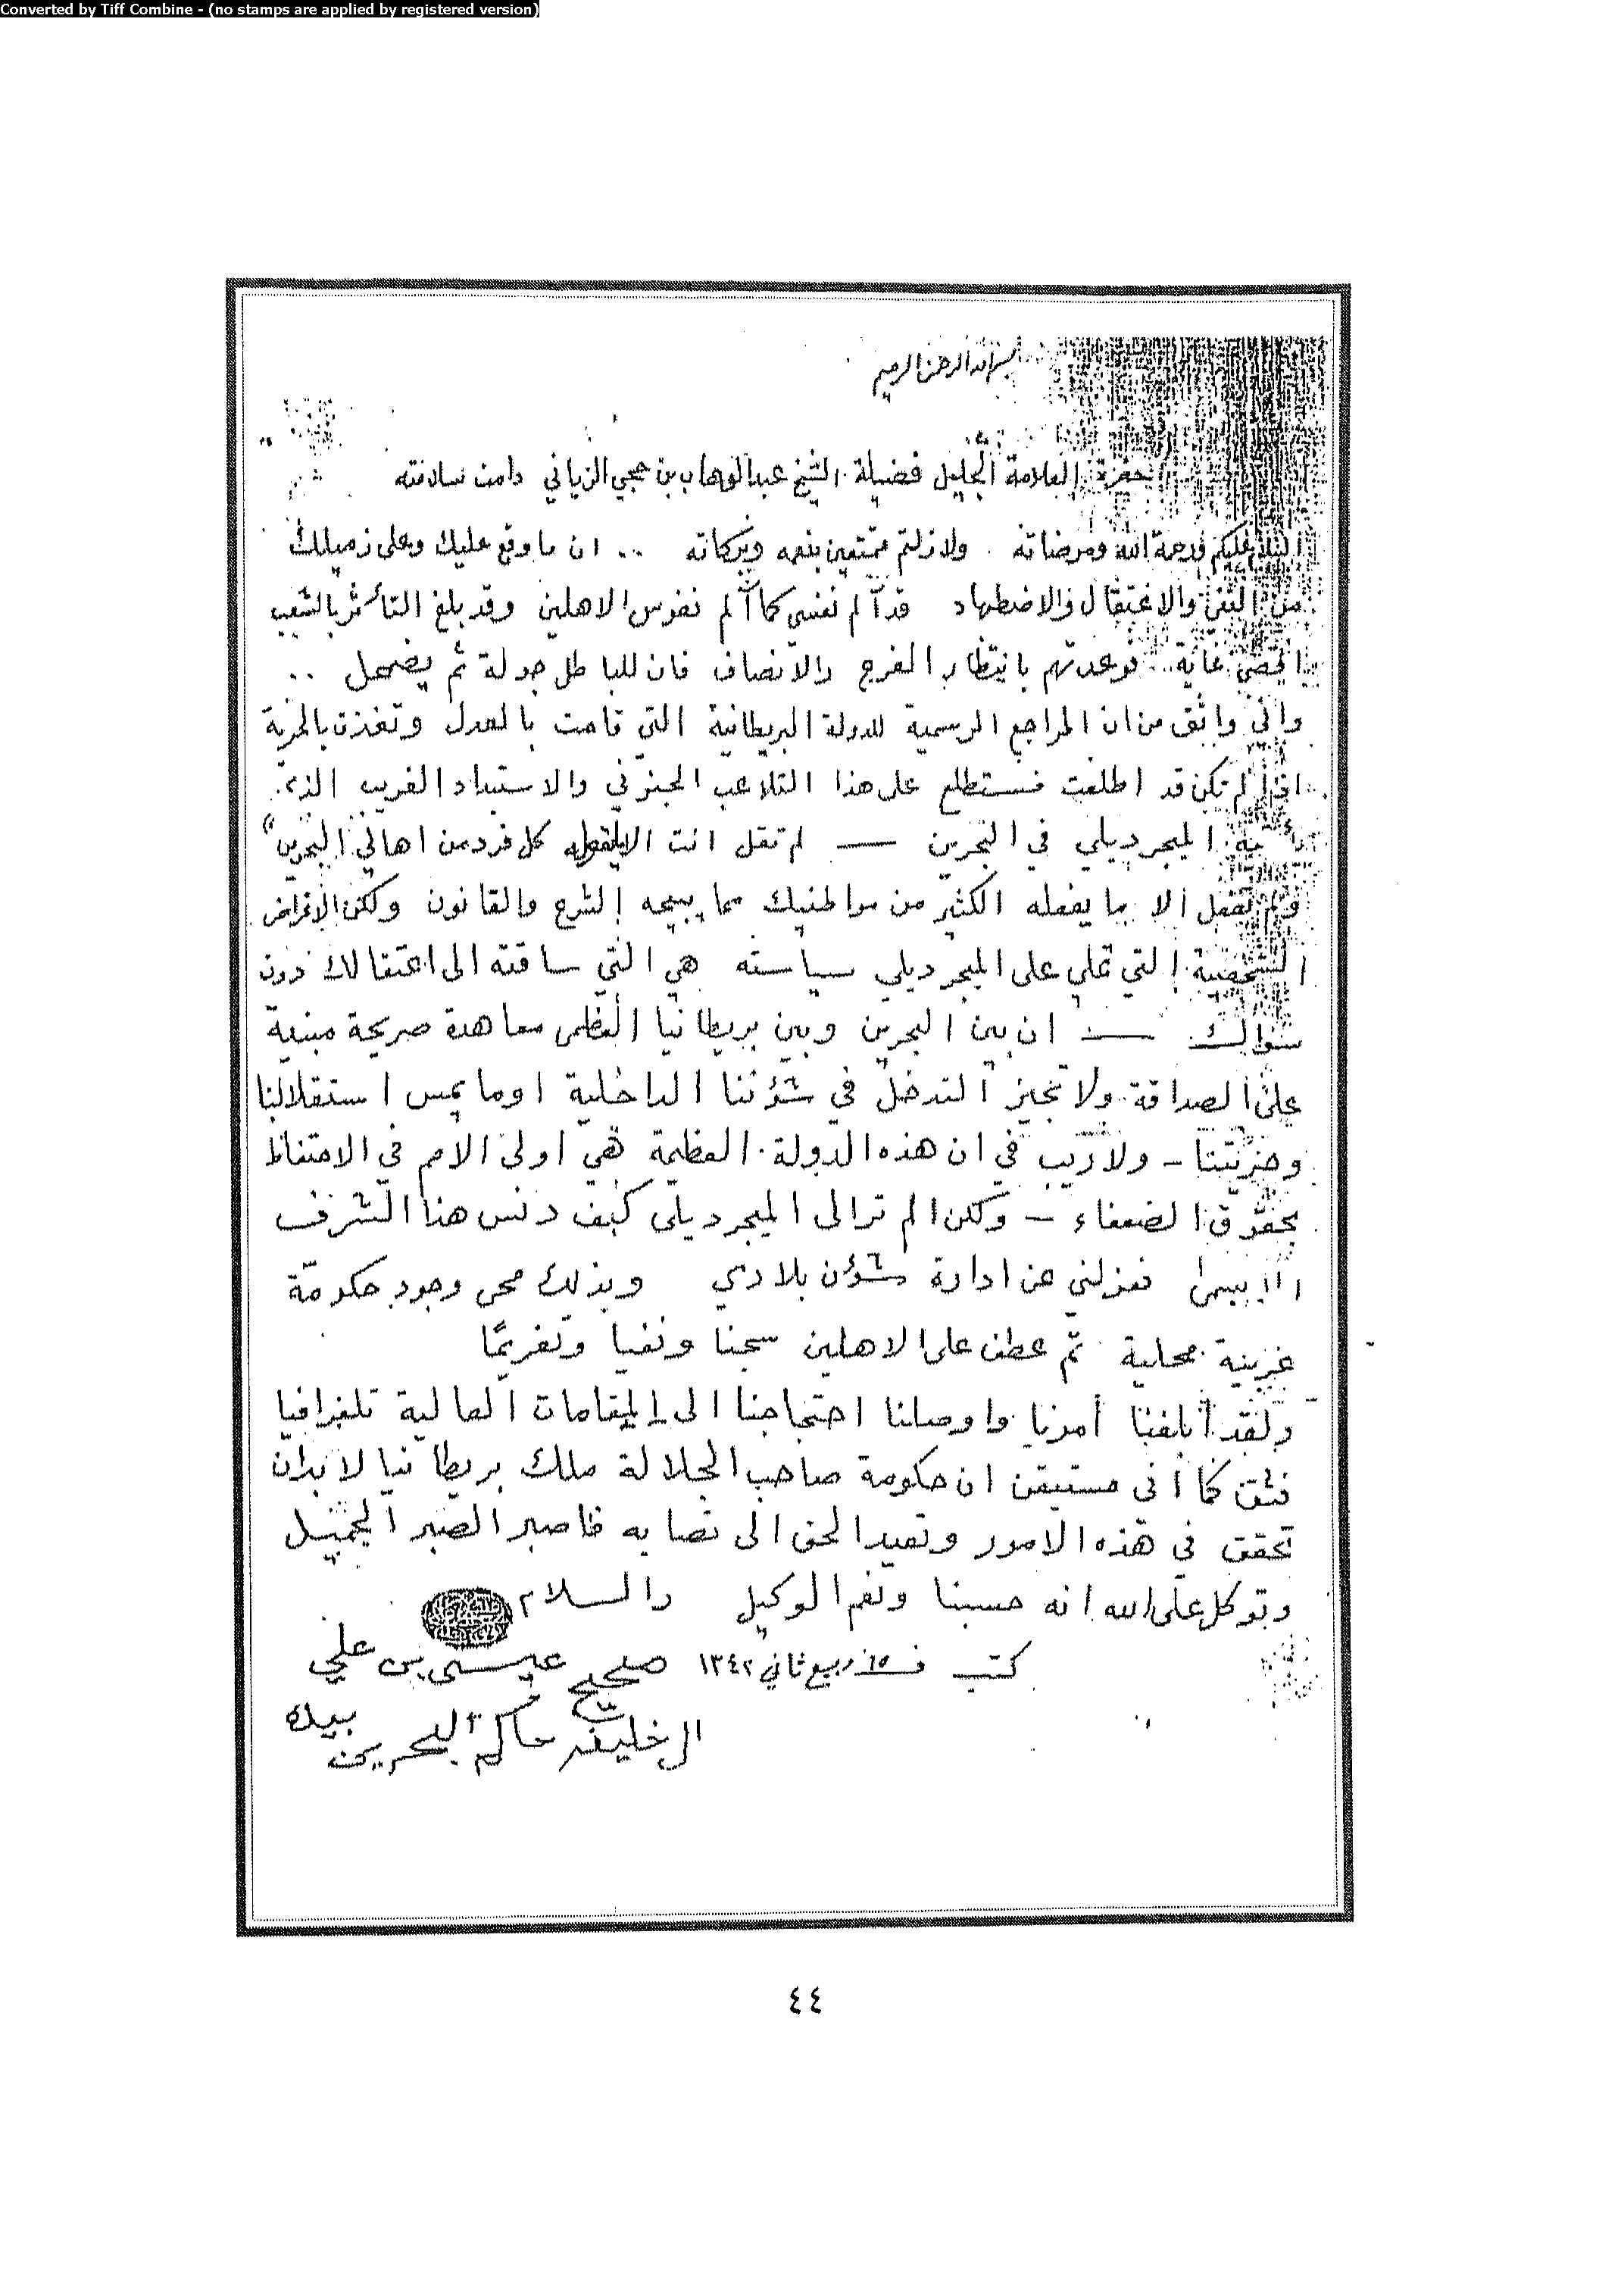 Converted by Tiff Combine - (no stamps are applied by registered version)
بسم الله الرحمن الرحيم
حضرة العلامة الجليل فضيلة الشيخ عبدالوهاب بن حجي الزياني دامت سلامته
السلام عليكم ورحمة الله ومرضاته ولازلتم ممتعين بنعمه وبركاته .. ان ما وقع عليك وعلى زميلك
من النفي والاعتقال والاضطهاد قد آلم نفسي كما آلم نفوس الاهلين وقد بلغ التأثر بالشعب
اقصى غاية فوعدتهم بانتظار الفرج والانصاف فان للباطل جولة ثم يضمحل ..
واني واثق من ان المراجع الرسمية للدولة البريطانية التي قامت بالعدل وتغذت بالحرية
اذا لم تكن قد اطلعت فستطلع على هذا التلاعب الجنوني والاستبداد الغريب الذي
يأتيه الميجر ديلي في البحرين — لم تقل انت الا ما يقوله كل فرد من اهالي البحرين
ولم تفعل الا ما يفعله الكثير من مواطنيك مما يبيحه الشرع والقانون ولكن الاغراض
الشخصية التي تملي على الميجر ديلي سياسته هي التي ساقته الى اعتقالك دون
سؤالك — ان بين البحرين وبين بريطانيا العظمى معاهدة صريحة مبنية
على الصداقة ولا تجيز التدخل في شؤننا الداخلية او ما يمس استقلالنا
وحريتنا - ولا ريب في ان هذه الدولة العظيمة هي اولى الامم في الاحتفاظ
بحقوق الضعفاء - ولكن الم تر الى الميجر ديلي كيف دنس هذا الشرف
فعزلني عن ادارة شؤن بلادي وبذلك محى وجود حكومة
عربية محلية ثم عطف على الاهلين سجنا ونفيا وتغريمًا
ولقد أبلغنا أمرنا واوصلنا احتجاجنا الى المقامات العالية تلغرافيا
فثق كما أني مستيقن ان حكومة صاحب الجلالة ملك بريطانيا لابد ان
تحقق في هذه الامور وتعيد الحق الى نصابه فاصبر الصبر الجميل
وتوكل على الله انه حسبنا ونعم الوكيل والسلام
كتب في ١٥ ربيع ثاني ١٣٤٢ صحيح عيسى بن علي
ال خليفه حاكم البحرين بيده
٤٤